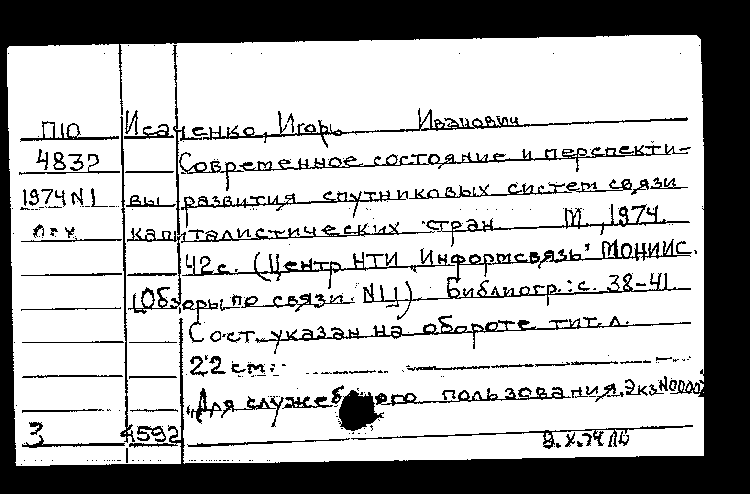 П10 Исаченко, Игорь Иванович
483? Современное состояние и перспекти-
1974 N1 вы развития спутниковых систем связи
капиталистических стран М., 1974.
42с. (Центр НТИ „Информсвязь" МОНИИС.
(Обзоры по связи. N1) Библиогр.: с. 38-41.
Сост. указан на обороте тит. л.
22 см.
„Для служебного пользования. Экз N0000
3 4592
9.X.74